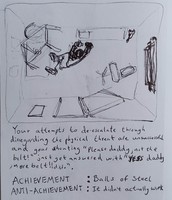 Your attempts to de-escalate through
disregarding the physical threat are unsuccessful
and your shouting "Please daddy, not the
belt!" just got answered with "YES daddy
more belt!!".
ACHIEVEMENT : Balls of Steel
ANTI-ACHIEVEMENT : It didn't actually work